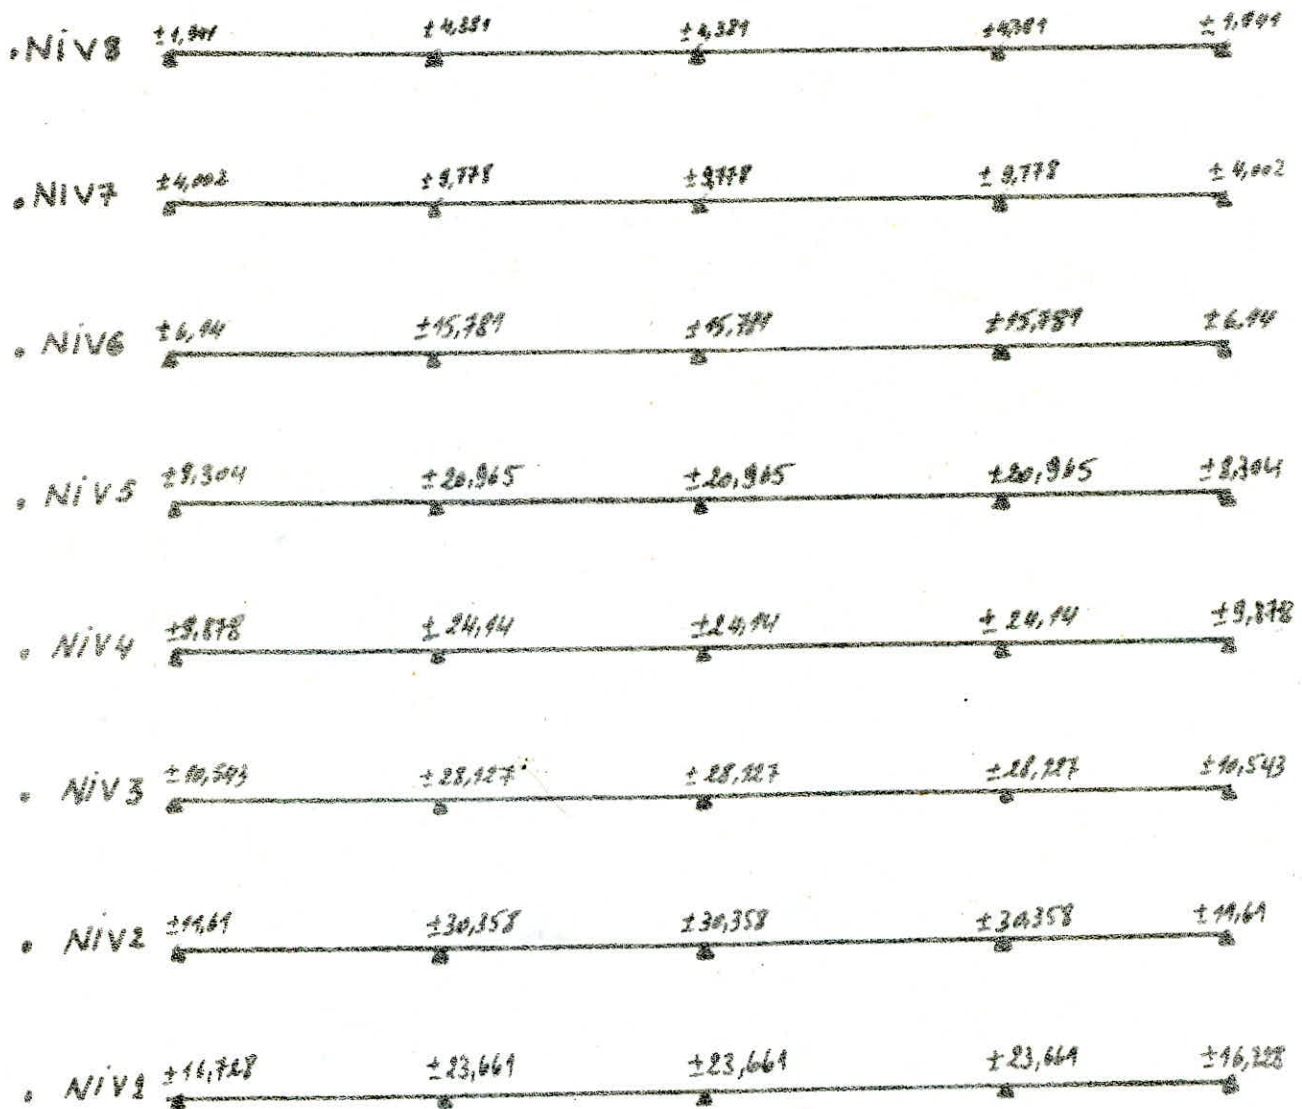 .NiV8 ±4,381 ±4,381 ±4,381
.NIV7 ±4,002 ±9,778 ±9,778 ±9,778 ±4,002
. NiV6 ±6,14 ±15,781 ±15,781 ±15,781 ±6.14
. NiV5 ±8,304 ±20,965 ±20,965 ±20,965 ±8,304
. NiV4 ±9,878 ±24,14 ±24,14 ±24,14 ±9,878
. NiV3 ±10,543 ±28,127 ±28,127 ±28,127 ±10,543
. NiV2 ±11,61 ±30,358 ±30,358 ±30,358 ±11,61
. NiV1 ±23,661 ±23,661 ±23,661